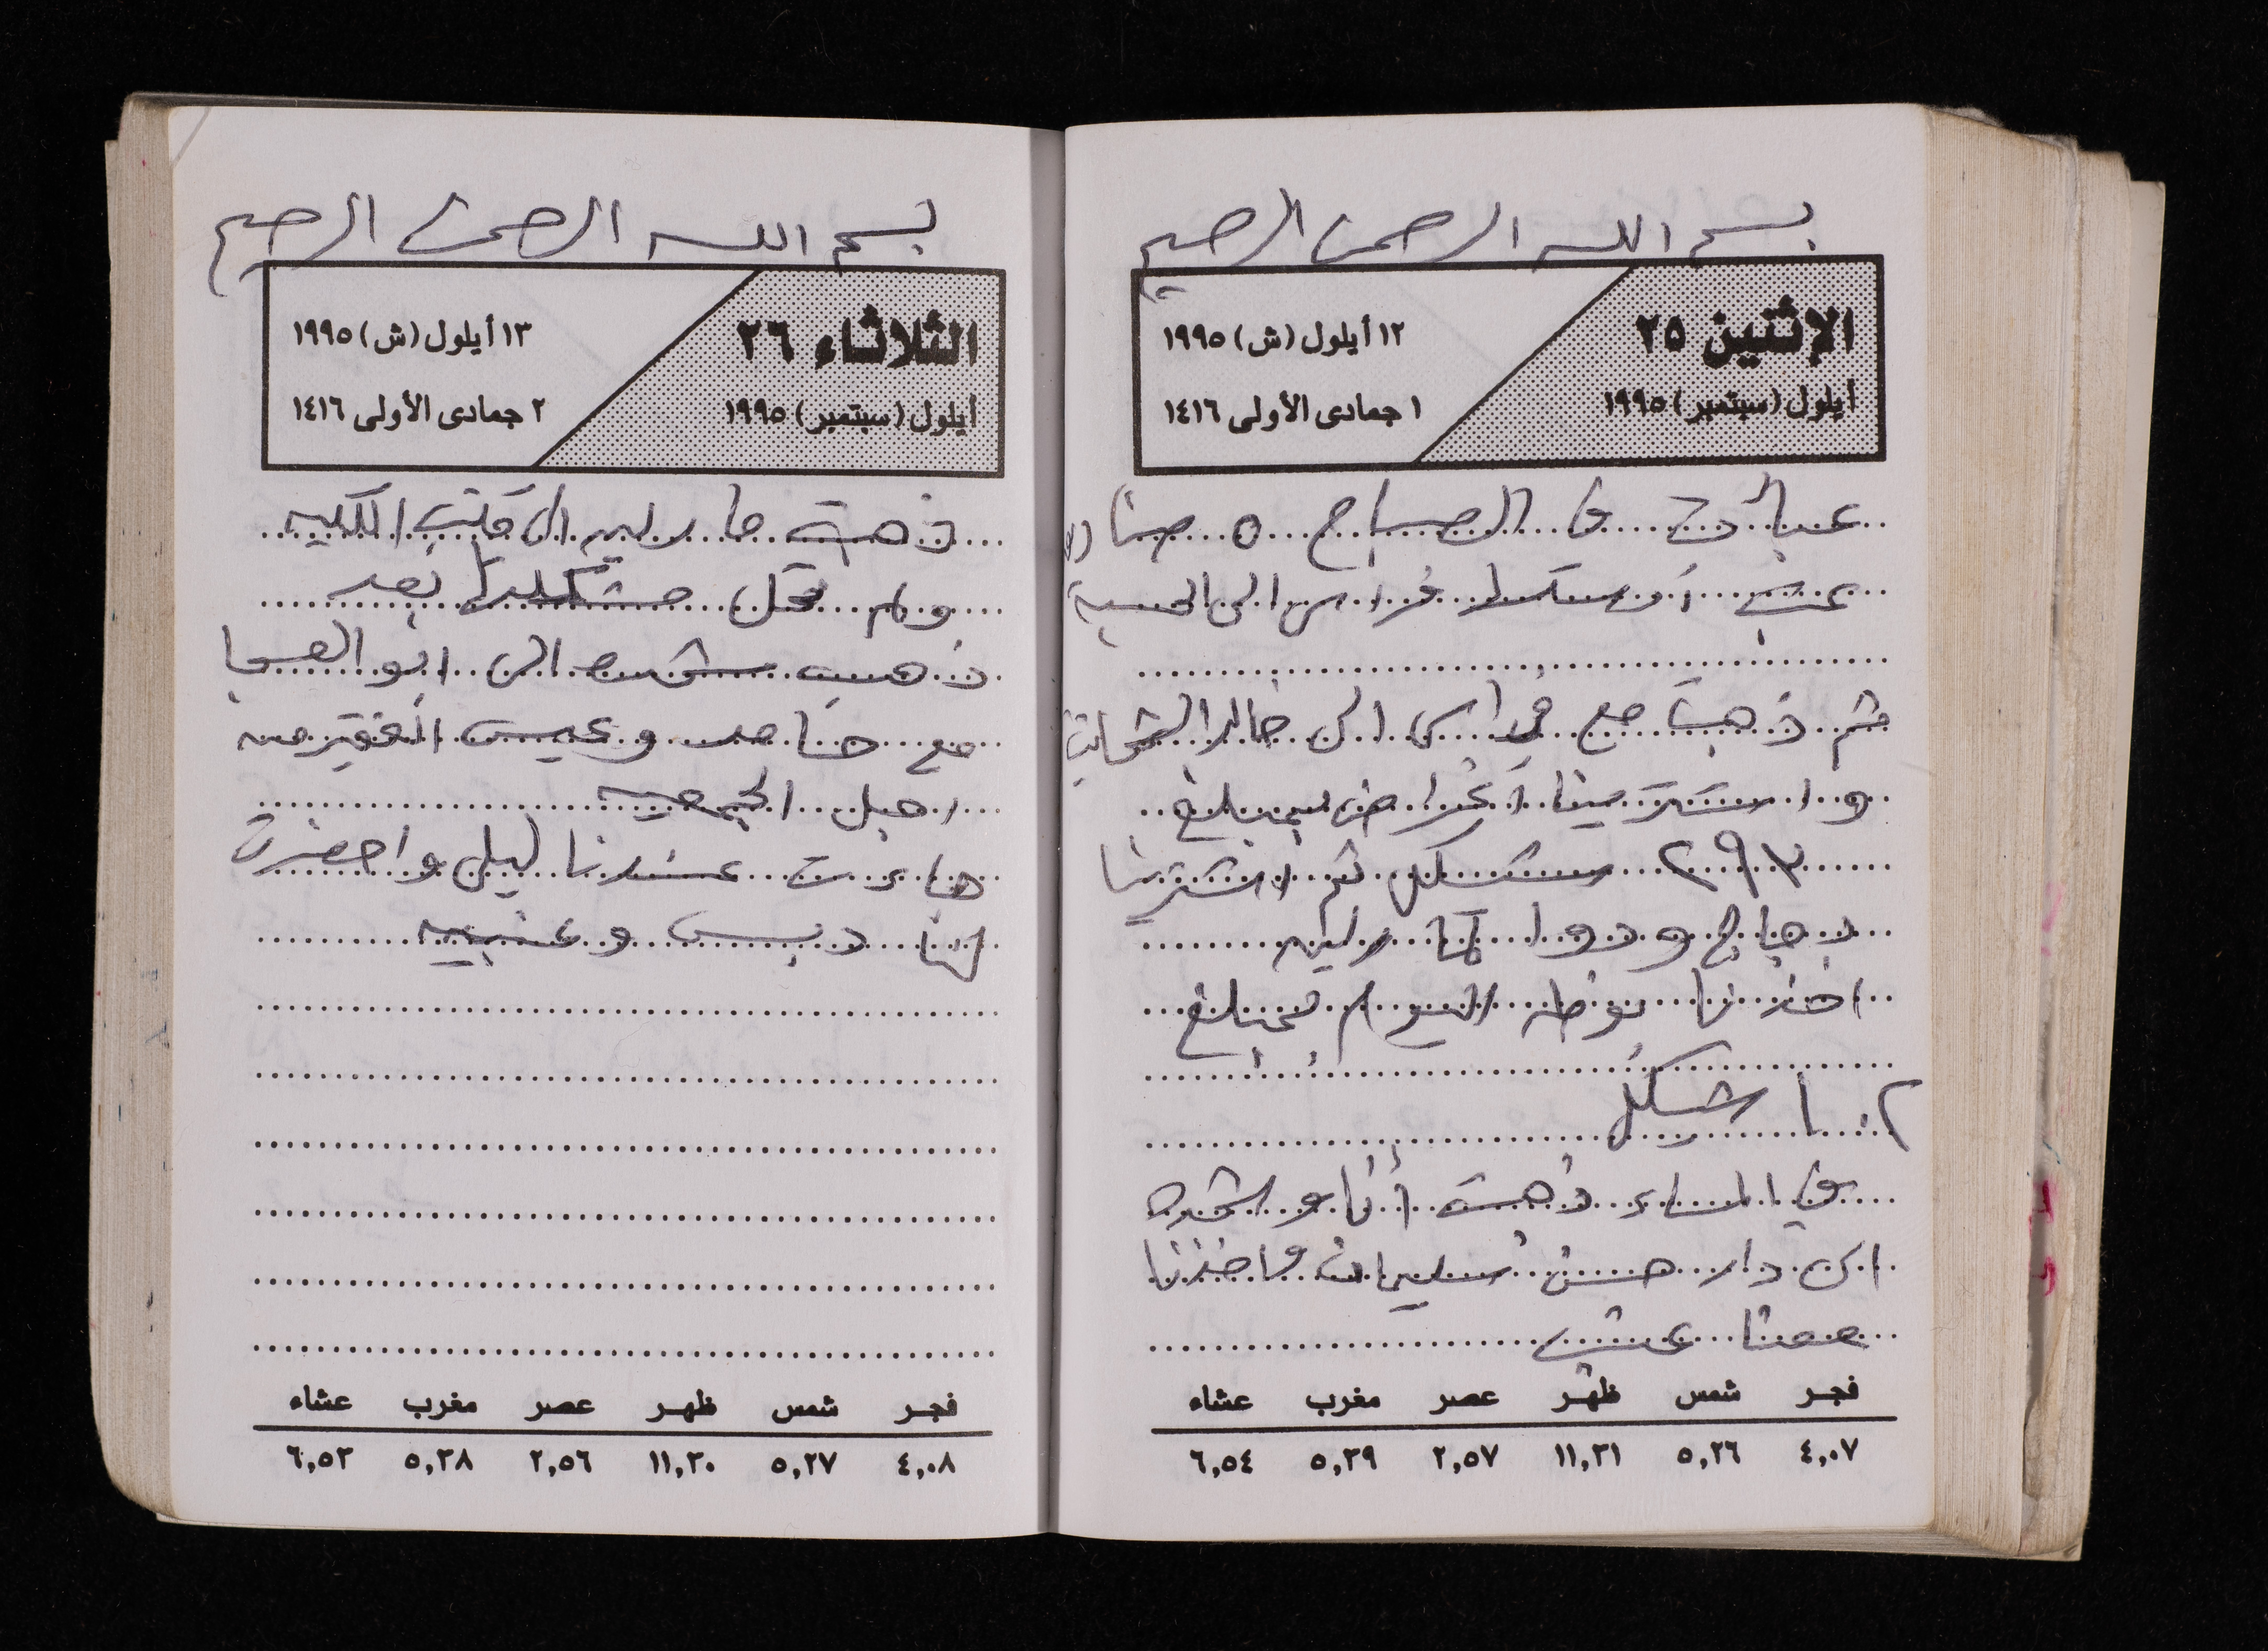 بسم الله الرحمن الرحيم
الإثنين ٢٥
أيلول (سبتمبر) ١٩٩٥
١٢ أيلول (ش) ١٩٩٥
١ جمادى الأولى ١٤١٦
في الصباح ٥
عنب فراس الى الحسبة
ثم ذهبت مع فراس الى خالد
و اشترينا أغراض بمبلغ
٢٩٣ شكل ثم اشترينا
دجاج و دوا لمارلين
اخذنا بوظه اليوم بمبلغ
١٠٢ شكل
في المساء ذهبت أنا و
الى دار حسن سليمان واخذنا
معنا عنب
فجر شمس ظهر عصر مغرب عشاء
٤,٠٧ ٥,٢٦ ١١,٣١ ٢,٥٧ ٥,٣٩ ٦,٥٤
بسم الله الرحمن الرحيم
الثلاثاء ٢٦
أيلول (سبتمبر) ١٩٩٥
١٣ أيلول (ش) ١٩٩٥
٢ جمادى الأولى ١٤١٦
ذهبت مارلين الى مكتب الكليه
ولم تحل مشكلتها بعد
ذهبت الى ابو العسجا
مع و عيسى
اجل الجمعيه
جاءت عندنا ليلى واحضرت
لنا دبس و عنبيه
فجر شمس ظهر عصر مغرب عشاء
٤,٠٨ ٥,٢٧ ١١,٣٠ ٢,٥٦ ٥,٣٨ ٦,٥٣